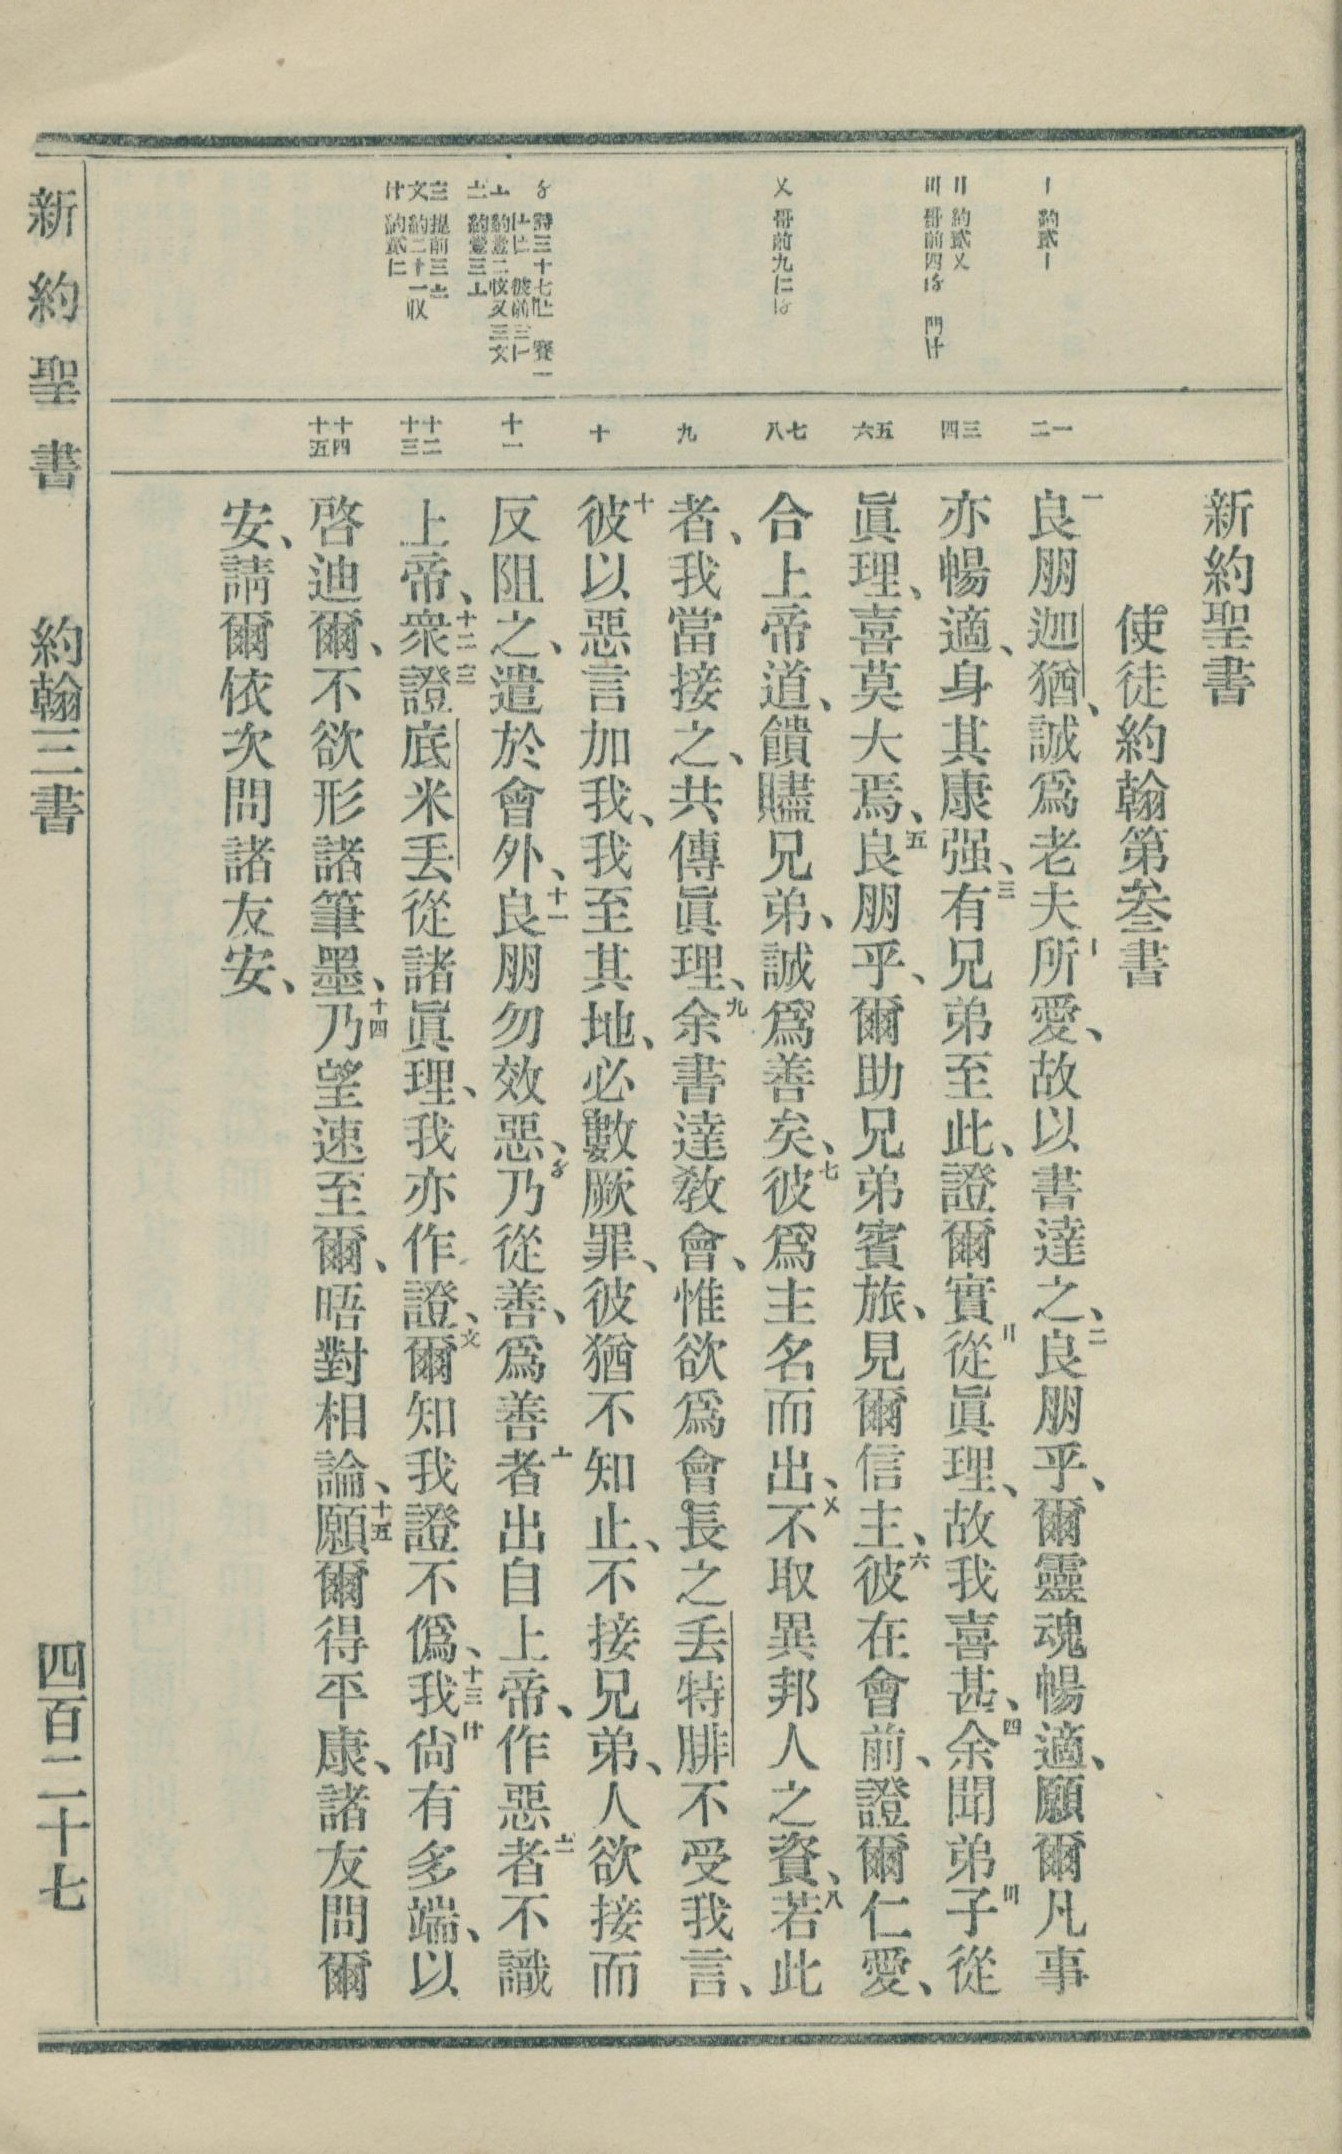 新約聖書
使徒約翰第叁書
一良朋迦猶、誠爲老夫所愛、故以書達之、二良朋乎、爾靈魂暢適、願爾凡事
亦暢適、身其康强、三有兄弟至此、證爾實從眞理、故我喜甚、四余聞弟子從
眞理、喜莫大焉、五良朋乎、爾助兄弟賓旅、見爾信主、六彼在會前、證爾仁愛、
合上帝道、饋贐兄弟、誠爲善矣、七彼爲主名而出、不取異邦人之資、八若此
者、我當接之、共傳眞理、九余書達教會、惟欲爲會長之丢特腓不受我言、
十彼以惡言加我、我至其地、必數厥罪、彼猶不知止、不接兄弟、人欲接而
反阻之、遣於會外、十一良朋勿效惡、乃從善、爲善者出自上帝、作惡者不識
上帝、十二衆證底米丢從諸眞理、我亦作證、爾知我證不僞、十三我尙有多端、以
啓迪爾、不欲形諸筆墨、十四乃望速至爾、晤對相論、十五願爾得平康、諸友問爾
安、請爾依次問諸友安、
一 二
三 四
五 六
七 八
九
十
十一
十二 十三
十四 十五
〡 約貳〡
〢 約貳〤
〣 哥前四〥 門〸
〤 哥前九
新約聖書 約翰三書 四百二十七